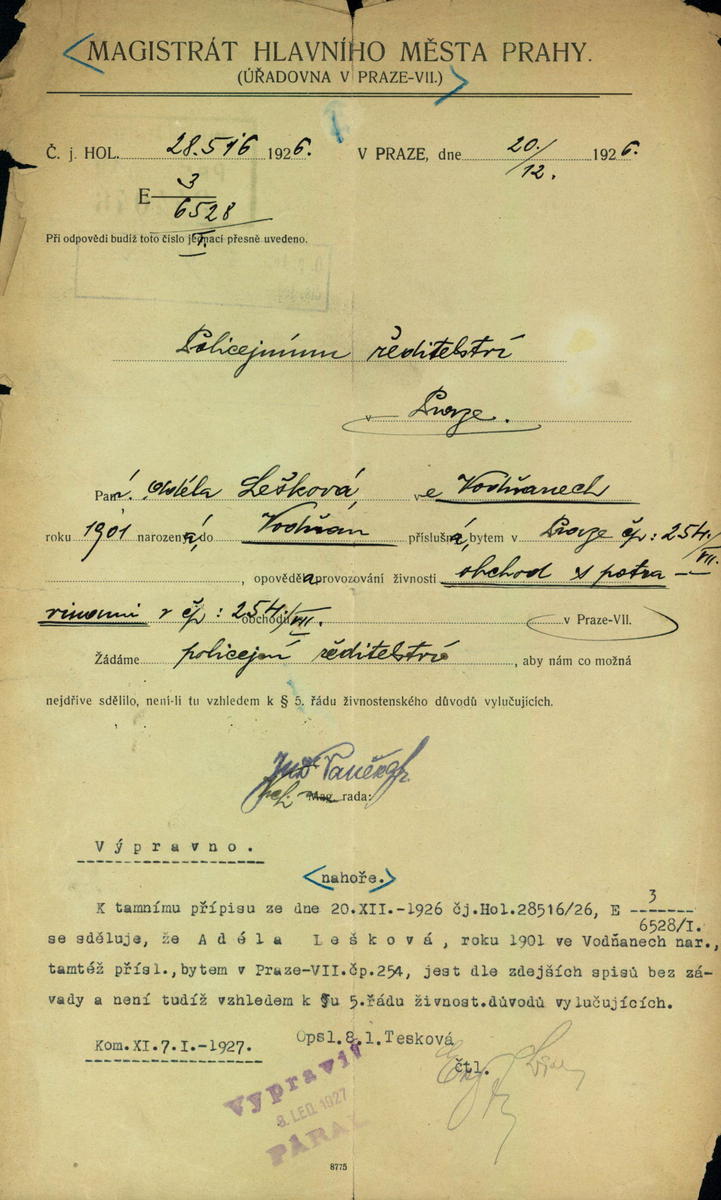 MAGISTRÁT HLAVNÍHO MĚSTA PRAHY.
(ÚŘADOVNA V PRAZE-VII.)
Č. j. HOL. 28.516 1926. V PRAZE, dne 20./12. 1926.
E 3/6528/I.
Při odpovědi budiž toto číslo jednací přesně uvedeno.
Policejnímu ředitelství
v Praze.
Paní Adéla Lešková, ve Vodňanech
roku 1901 narozená, do Vodňan příslušná, bytem v Praze čp: 254/VII.
, opověděla provozování živnosti obchod s potra-
vinami v čp: 254/VII. v Praze-VII.
Žádáme policejní ředitelství, aby nám co možná
nejdříve sdělilo, není-li tu vzhledem k § 5. řádu živnostenského důvodů vylučujících.
Mag. rada:
Výpravno.
nahoře.
K tamnímu přípisu ze dne 20.XII.-1926 čj.Hol.28516/26, E 3/6528/I.
se sděluje, že Adéla Lešková, roku 1901 ve Vodňanech nar.,
tamtéž přísl.,bytem v Praze-VII.čp.254, jest dle zdejších spisů bez zá-
vady a není tudíž vzhledem k §u 5.řádu živnost.důvodů vylučujících.
Kom.XI.7.I.-1927. Opsl.8.1.Tesková
čtl.
Vypravil
8. LED. 1927
8775